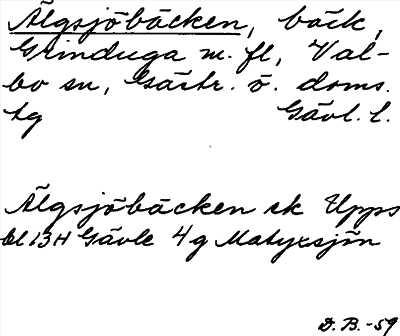 Älgsjöbäcken, bäck,
Grinduga m. fl, Val-
bo sn, Gästr. ö. doms.
tg Gävl. l.
Älgsjöbäcken ek Upps
bl 13H Gävle 4g Matyxsjön
D. B. -59